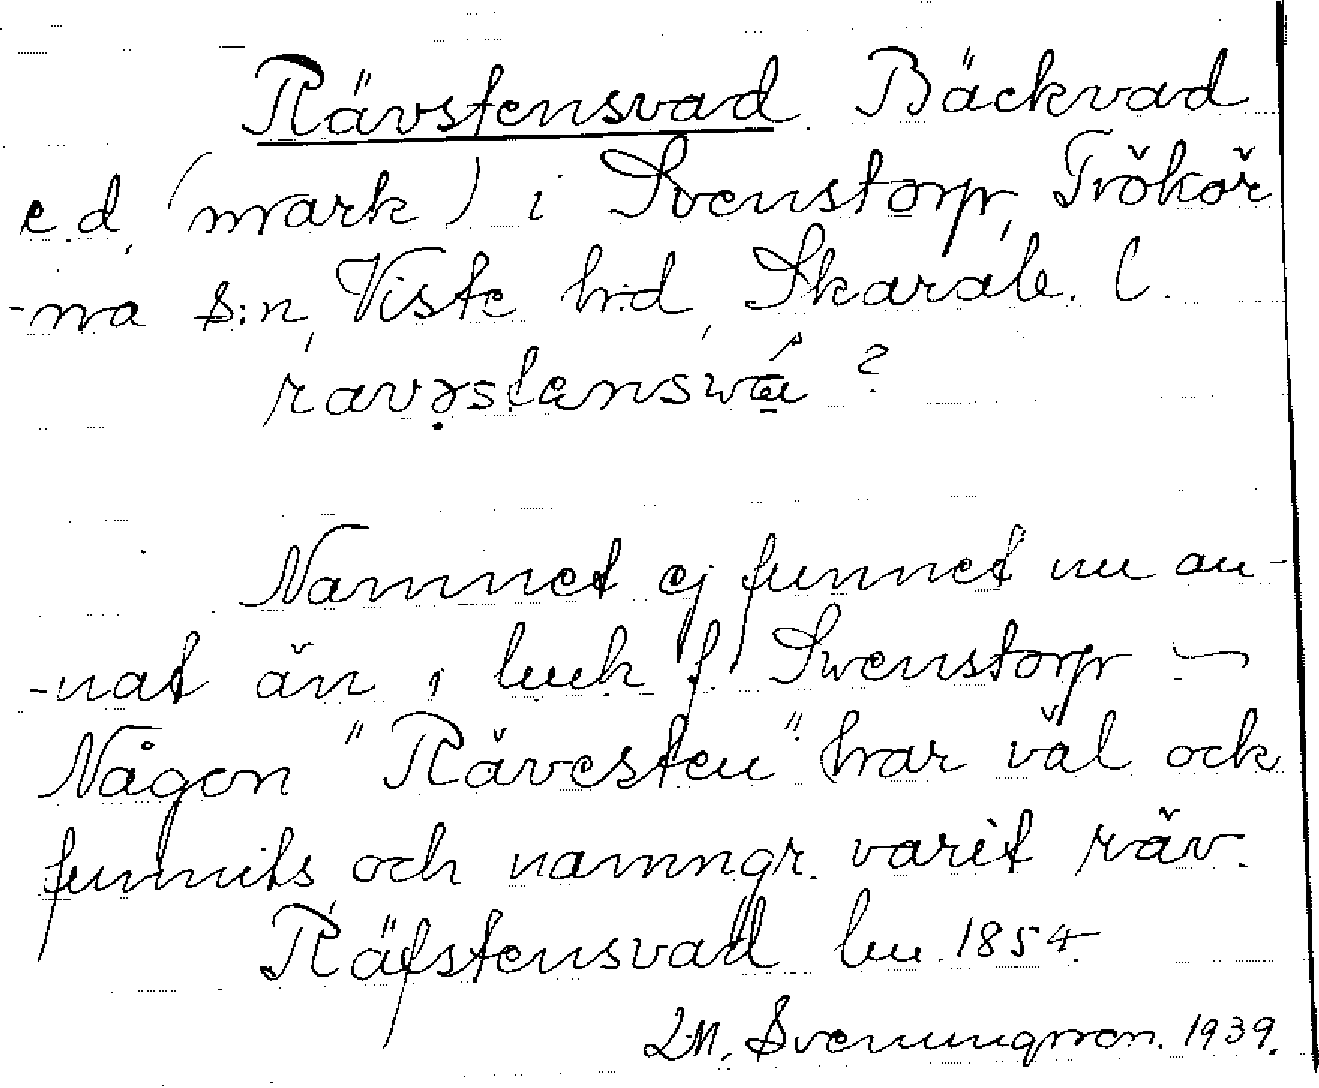 Rävstensvad. Bäckvad
e.d. (mark) i Svenstorp, Trökör
-na s:n, Viste hd, Skarab. l.
ravəstenswa ?
Namnet ej funnet nu an-
-nat än i luk f. Svenstorp –
Någon "Rävesten" har väl ock
funnits och namngr. varit räv.
Räfstensvad lu 1854.
Svenungsson. 1939.